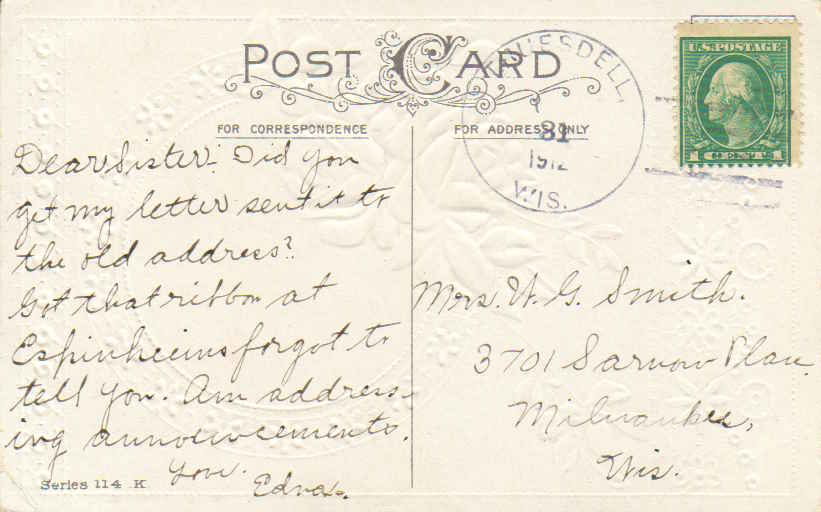 POST CARD
FOR CORRESPONDENCE
FOR ADDRESS ONLY
UESDELL,
31
1912
WIS.
U.S. POSTAGE
1 CENT 1
Dear Sister- Did you
get my letter sent it to
the old address?
Got that ribbon at
Espinheims forgot to
tell you. Am address-
ing announcements.
Love.
Edna.
Mrs. W. G. Smith.
3701 Sarnow Place
Milwaukee,
Wis.
Series 114 K